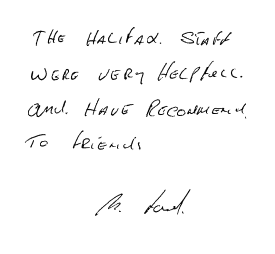 THE HALIFAX. STAFF
WERE VERY HELPFULL.
AND. HAVE RECOMMEND
TO FRIENDS